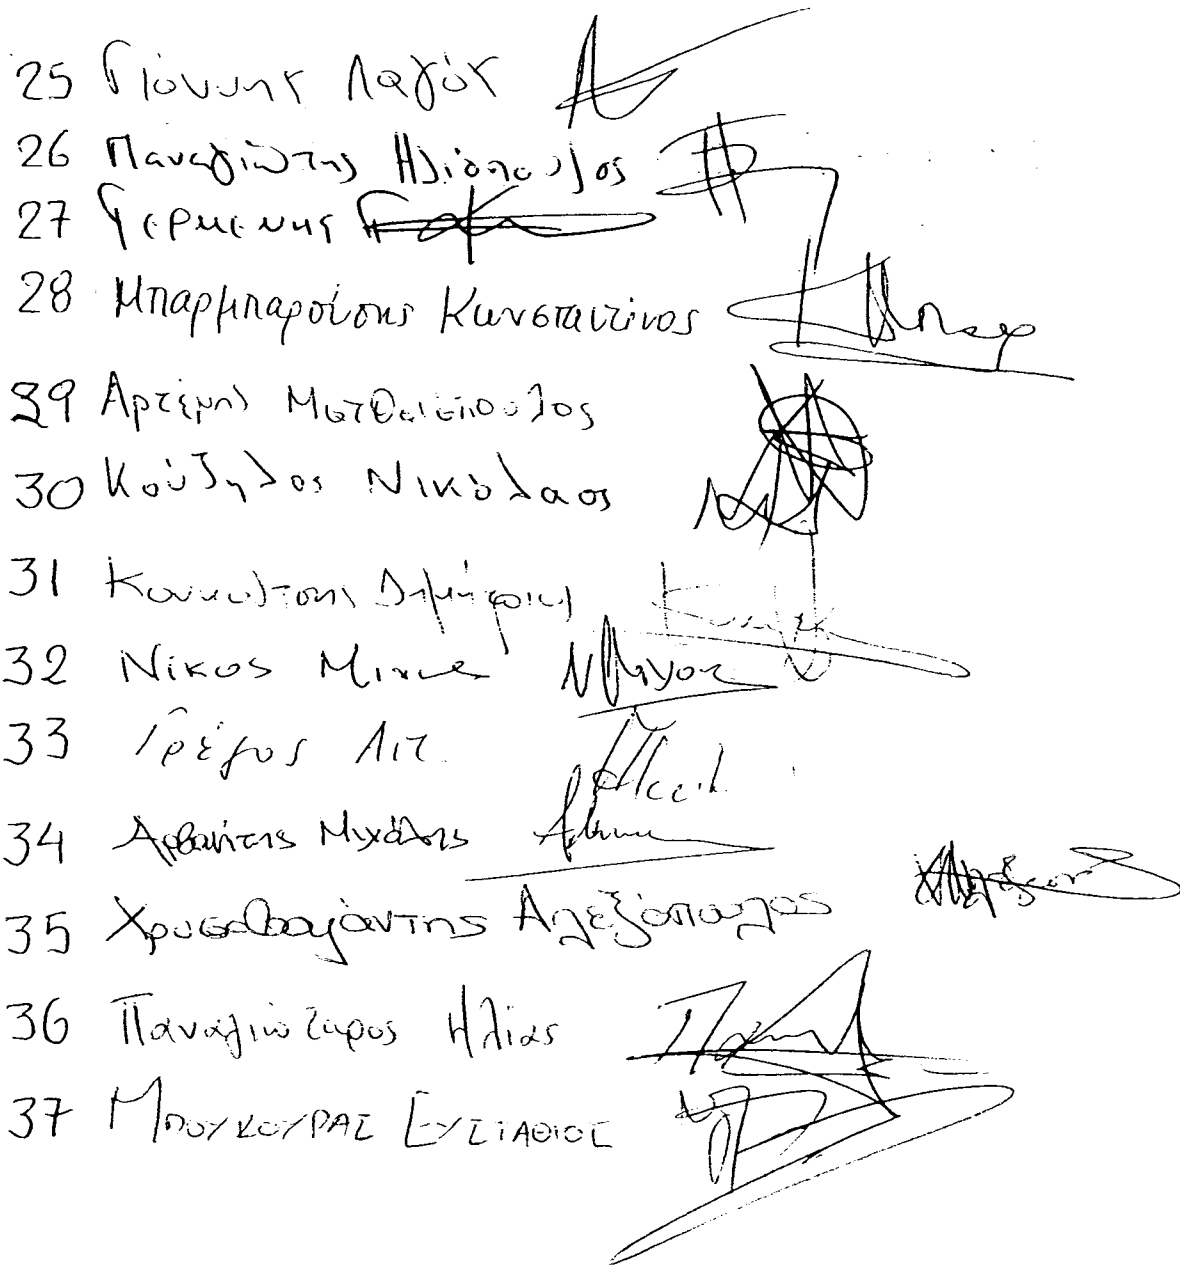 25 Γιάννης Λαγός
26 Παναγιώτης Ηλιόπουλος
27 Γερμενής
28 Μπαρμπαρούσης Κωνσταντίνος
29 Αρτέμης Ματθαιόπουλος
30 Κούζηλος Νικόλαος
31 Κουκούτσης Δημήτριος
32 Νίκος Μίχος
33 Γρέγος Αντ.
34 Αρβανίτης Μιχάλης
35 Χρυσοβαλάντης Αλεξόπουλος
36 Παναγιώταρος Ηλίας
37 ΜΠΟΥΚΟΥΡΑΣ ΕΥΣΤΑΘΙΟΣ